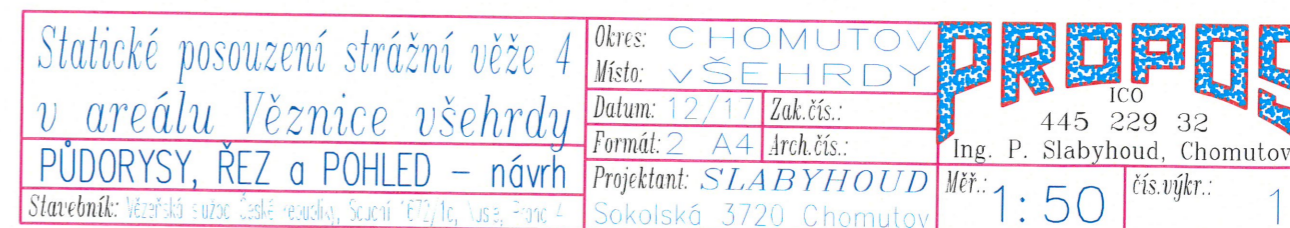 Statické posouzení strážní věže 4
v areálu Věznice všehrdy
PŮDORYSY, ŘEZ a POHLED – návrh
Stavebník: Vězeňská České republiky, 1672/1a,
Okres: CHOMUTOV
Místo: VŠEHRDY
Datum: 12/17 Zak.čís.:
Formát: 2 A4 Arch.čís.:
Projektant: SLABYHOUD
Sokolská 3720 Chomutov
PROPOS
ICO
445 229 32
Ing. P. Slabyhoud, Chomutov
Měř.: 1:50 čís.výkr.: 1